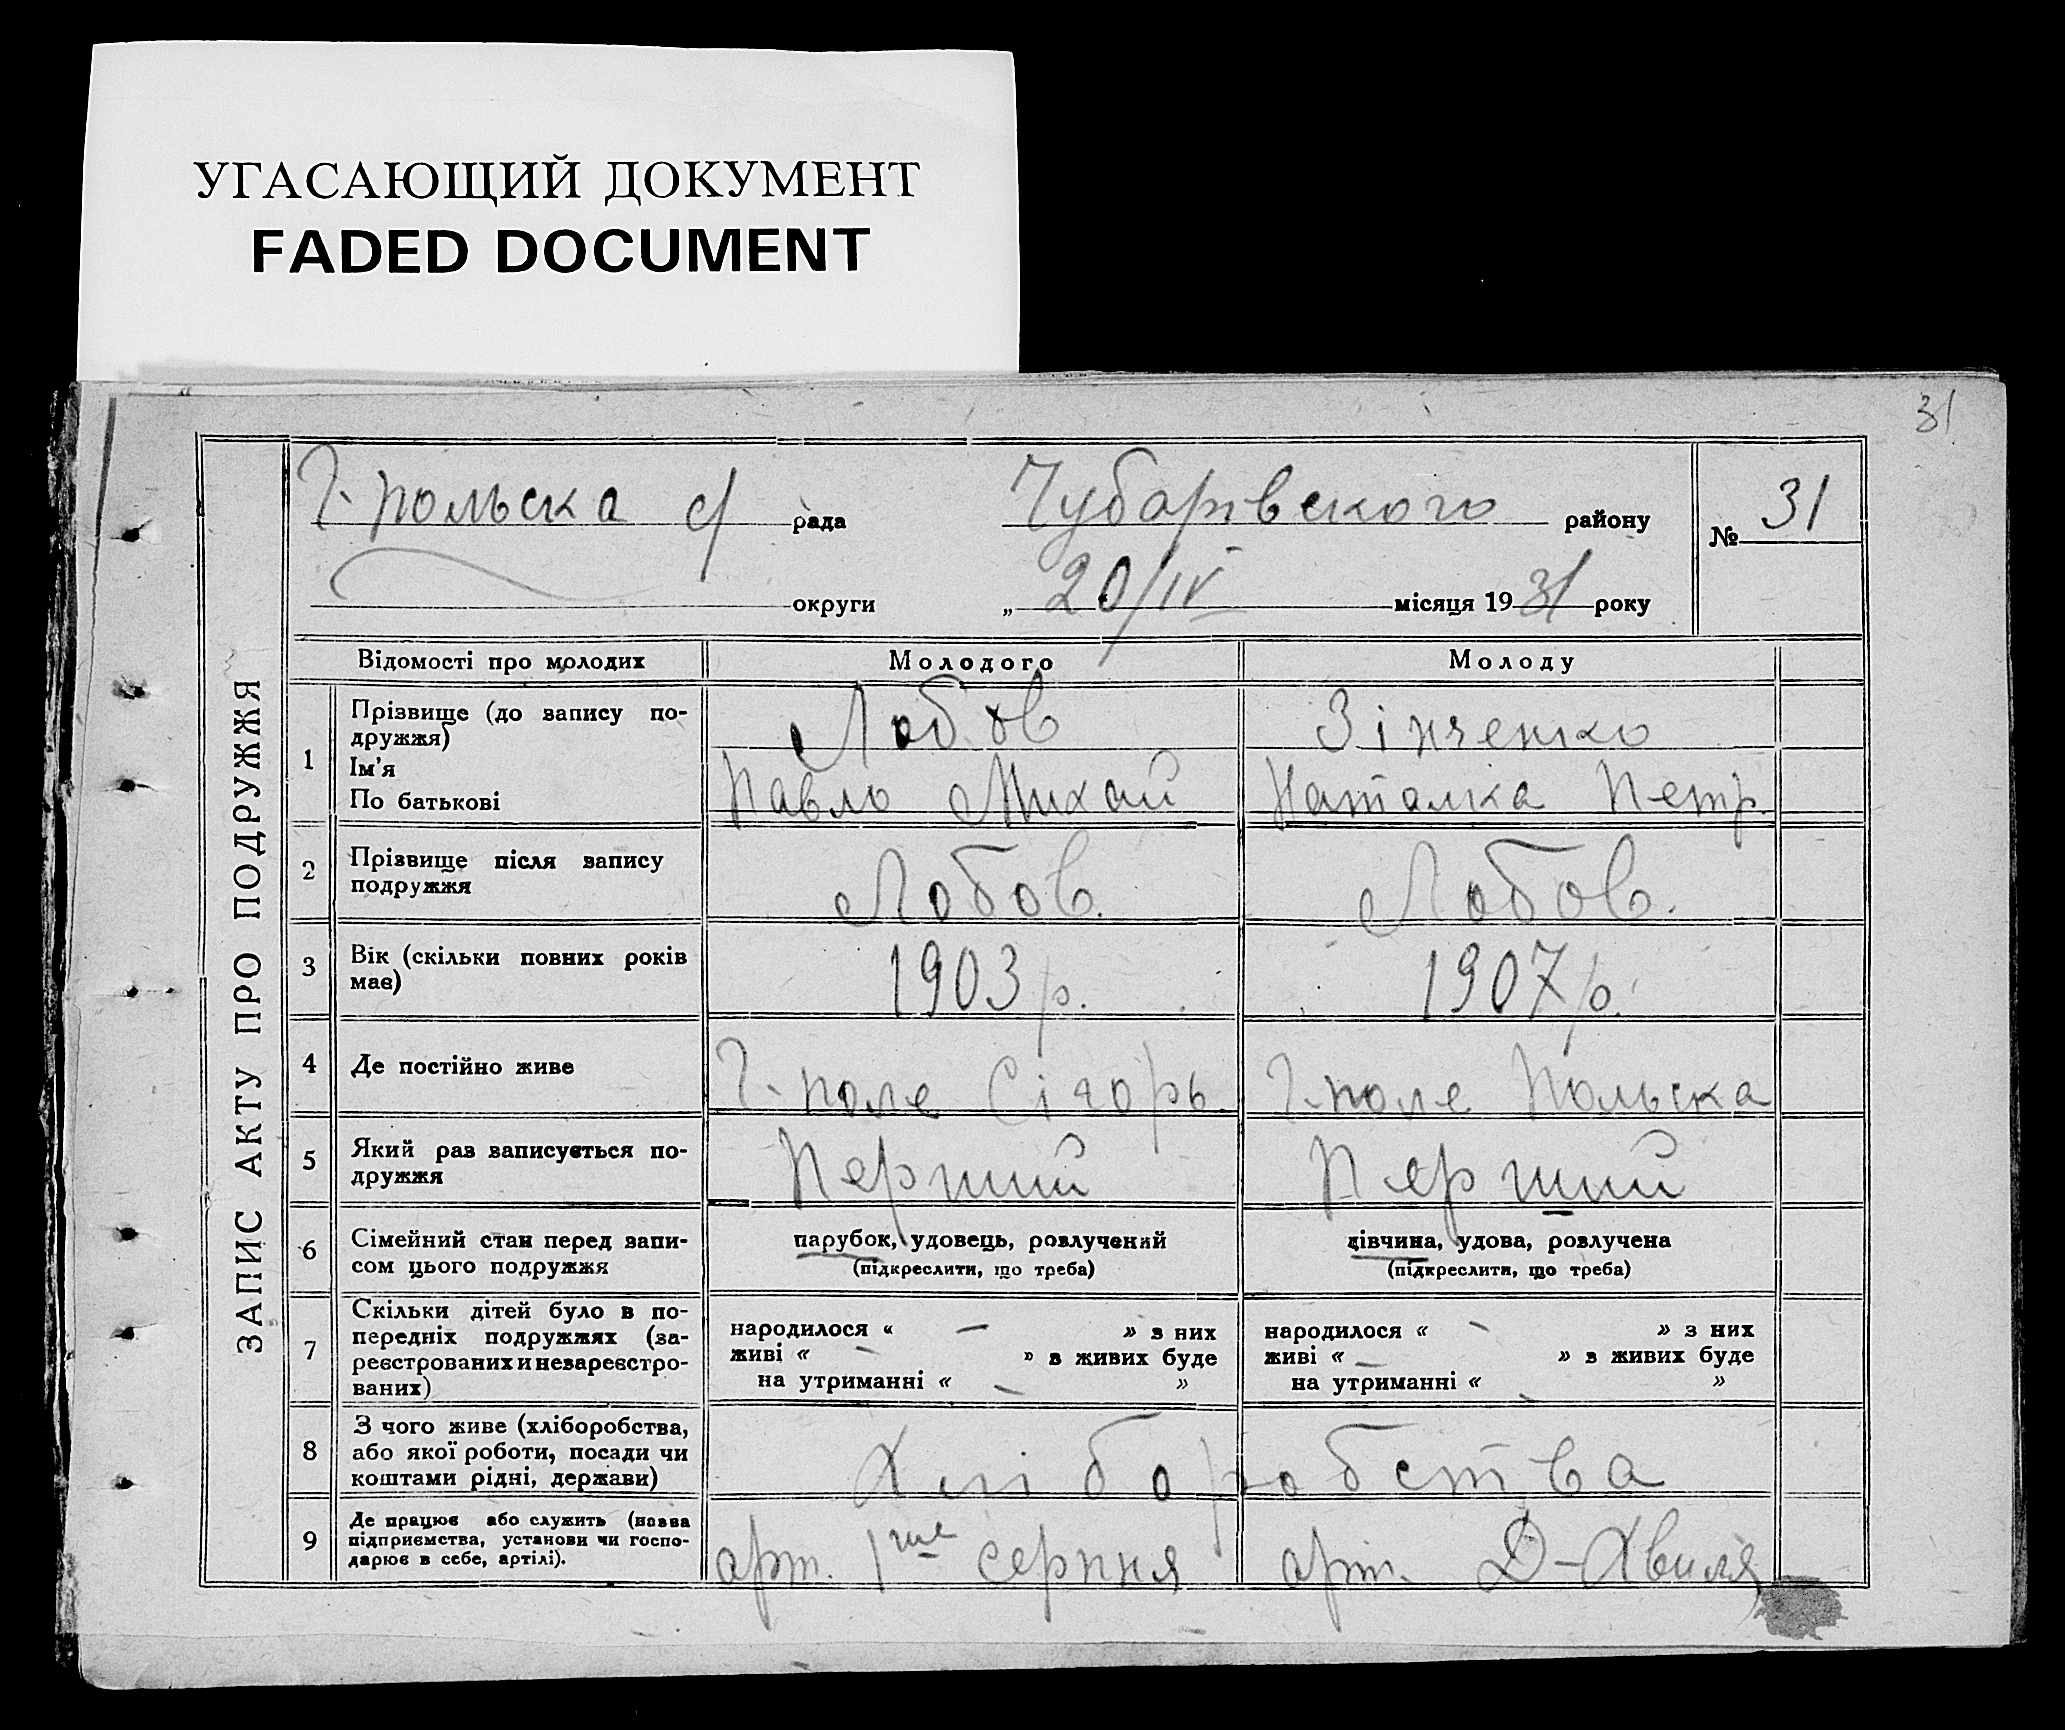 УГАСАЮЩИЙ ДОКУМЕНТ
FADED DOCUMENT
31
ЗАПИС АКТУ ПРО ПОДРУЖЖЯ
Г-польска с/ рада Чубарівского району № 31
округи „ 20/IV місяця 1931 року
Відомості про молодих Молодого Молоду
1 Прізвище (до запису по-
дружжя) Лобов Зінченко
Ім'я
По батькові Павло Михай Наталка Петр.
2 Прізвище після запису
подружжя Лобов. Лобов.
3 Вік (скільки повних років
має) 1903 р. 1907 р.
4 Де постійно живе Г-поле Сігорь Г-поле Польска
5 Який раз записується по-
дружжя Перший Перший
6 Сімейний стан перед запи-
сом цього подружжя
парубок, удовець, розлучений дівчина, удова, розлучена
(підкреслити, що треба) (підкреслити, що треба)
7 Скільки дітей було в по-
передніх подружжях (за-
реєстрованих и незареєстро-
ваних)
народилося « — » з них народилося « - » з них
живі « — » в живих буде живі « — » з живих буде
на утриманні « — » на утриманні « - »
8 З чого живе (хліборобства,
або якої роботи, посади чи
коштами рідні, держави) Хліборобства
9 Де працює або служить (назва
підприємства, установи чи госпо-
дарює в себе, артілі).
арт. 1ше серпня арт. Д-Хвиля